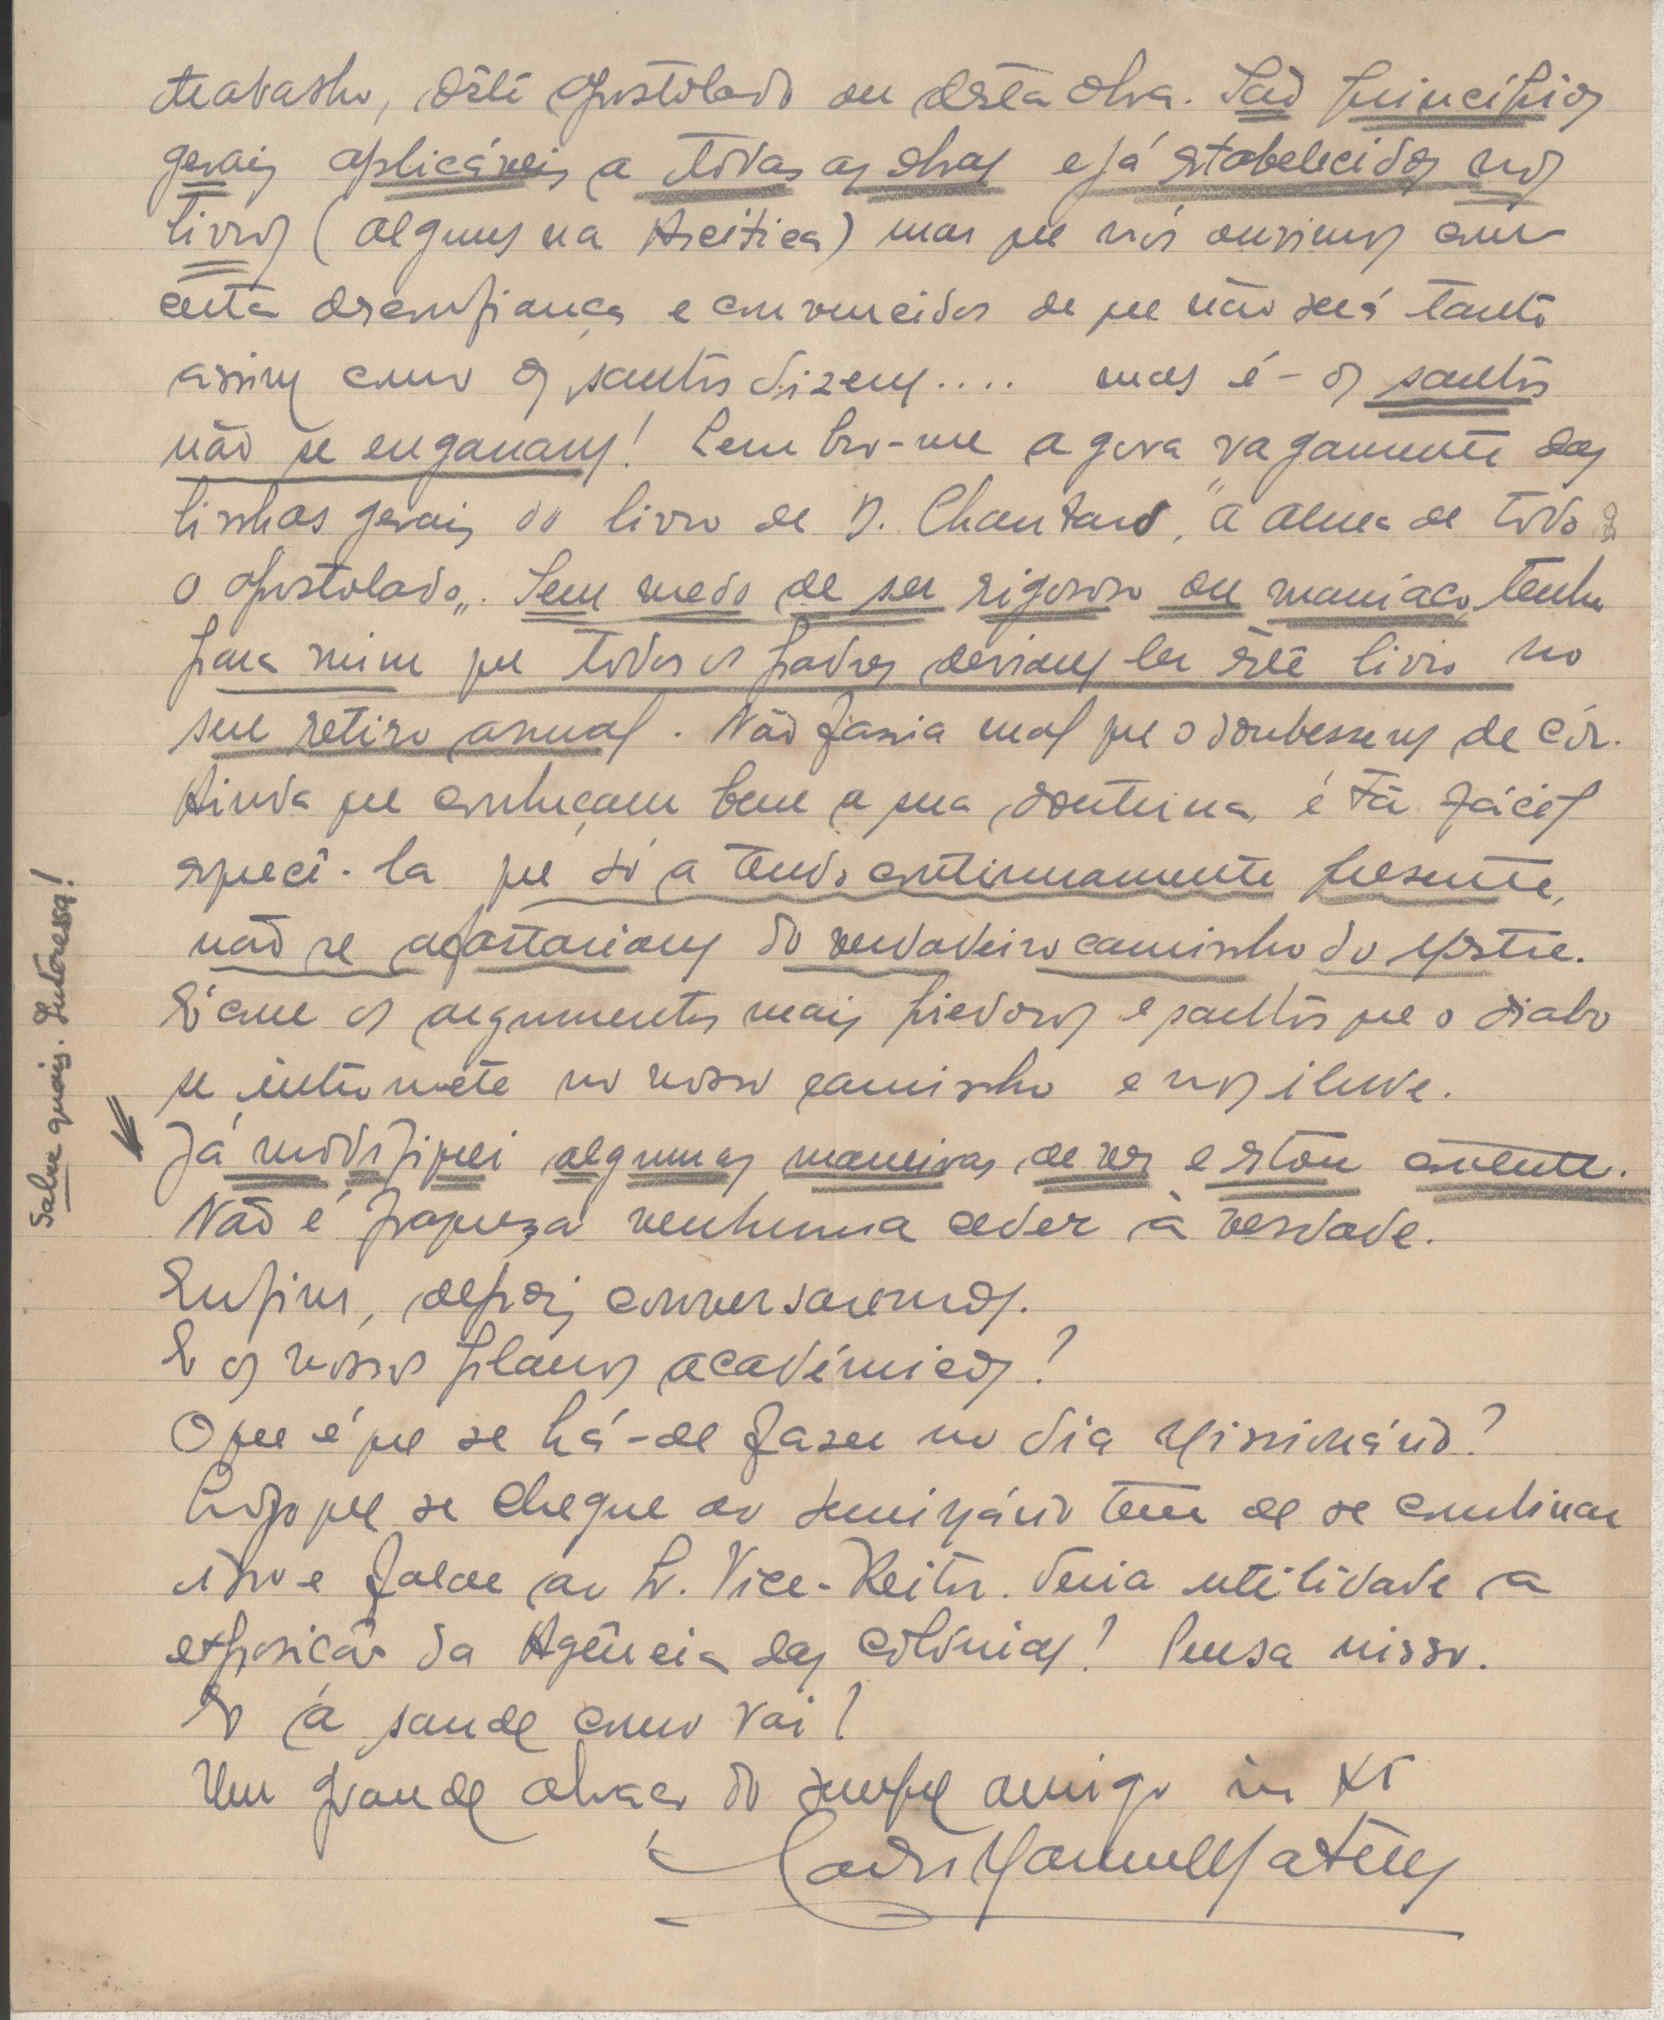 trabalho, dêste apostolado ou desta obra. São princípios
gerais aplicáveis a tôdas as obras e já estabelecidos nos
livros (alguns na Ascética) mas que nós ouvimos com
certa desconfiança e convencidos de que não será tanto
assim como os santos dizem.... mas é - os santos
não se enganam! Lembro-me agora vagamente das
linhas gerais do livro de D. Chautard, "a alma de todo
o apostolado". Sem medo de ser rigoroso ou maníaco, tenho
para mim que todos os padres deviam ler êste livro no
seu retiro anual. Não fazia mal que o soubessem de cór.
Ainda que conheçam bem a sua doutrina, é tã fácil
esquecê-la que só a tendo continuamente presente,
não se afastariam do verdadeiro caminho do Mestre.
É com os argumentos mais piedosos e santos que o diabo
se intromete no nosso caminho e nos ilude.
Já modifiquei algumas maneiras de ver e estou contente.
Não é fraqueza nenhuma ceder à verdade.
Enfim, depois conversaremos.
E os nossos planos académicos?
O que é que se há-de fazer no dia Missionário?
Logo que se chegue ao seminário tem de se combinar
isso e falar ao Sr. Vice-Reitor. Teria utilidade a
exposição da Agência das Colónias? Pensa nisso.
E a saude como vai?
Um grande abraço do sempre amigo in XT
Manuel
Saber quais. Interessa!